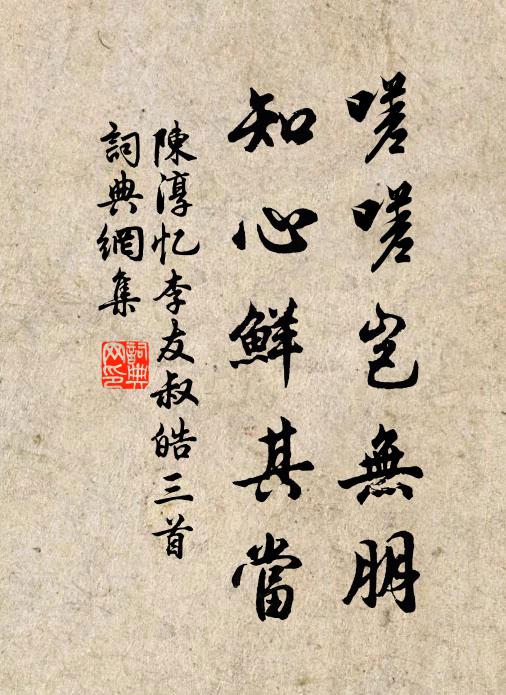 嗟嗟豈無朋
知心鮮其當
陳淳忆李友叔皓三首
詞典網集
詞典网印